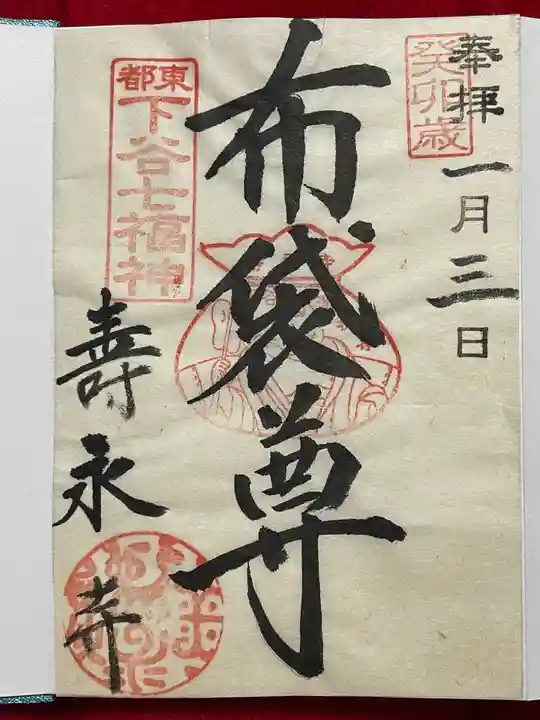 奉拝
癸卯歳
一月三日
布袋尊
東都
下谷七福神
寿永寺